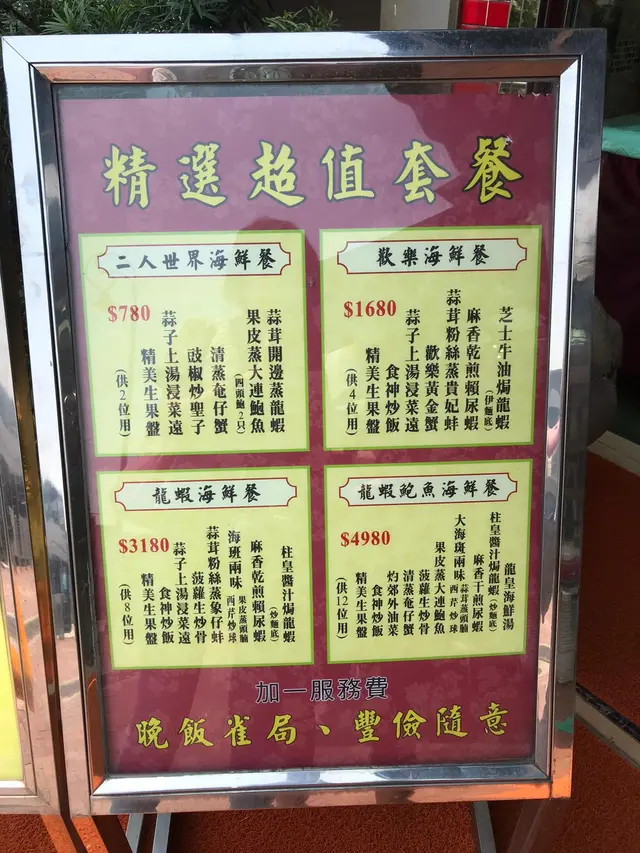 精選超值套餐
二人世界海鮮餐
$780
蒜茸開邊蒸龍蝦
果皮蒸大連鮑魚
(四頭鮑2只)
清蒸奄仔蟹
豉椒炒聖子
蒜子上湯浸菜遠
精美生果盤
(供2位用)
歡樂海鮮餐
$1680
芝士牛油焗龍蝦
(伊麵底)
麻香乾煎瀨尿蝦
蒜茸粉絲蒸貴妃蚌
歡樂黃金蟹
蒜子上湯浸菜遠
食神炒飯
精美生果盤
(供4位用)
龍蝦海鮮餐
$3180
柱皇醬汁焗龍蝦
(炒麵底)
麻香乾煎瀨尿蝦
海班兩味
果皮蒸頭腩
西芹炒球
蒜茸粉絲蒸象仔蚌
菠蘿生炒骨
蒜子上湯浸菜遠
食神炒飯
精美生果盤
(供8位用)
龍蝦鮑魚海鮮餐
$4980
龍皇海鮮湯
柱皇醬汁焗龍蝦
(炒麵底)
麻香干煎瀨尿蝦
大海斑兩味
蒜茸蒸頭腩
西芹炒球
果皮蒸大連鮑魚
菠蘿生炒骨
清蒸奄仔蟹
灼郊外油菜
食神炒飯
精美生果盤
(供12位用)
加一服務費
晚飯雀局、豐儉隨意